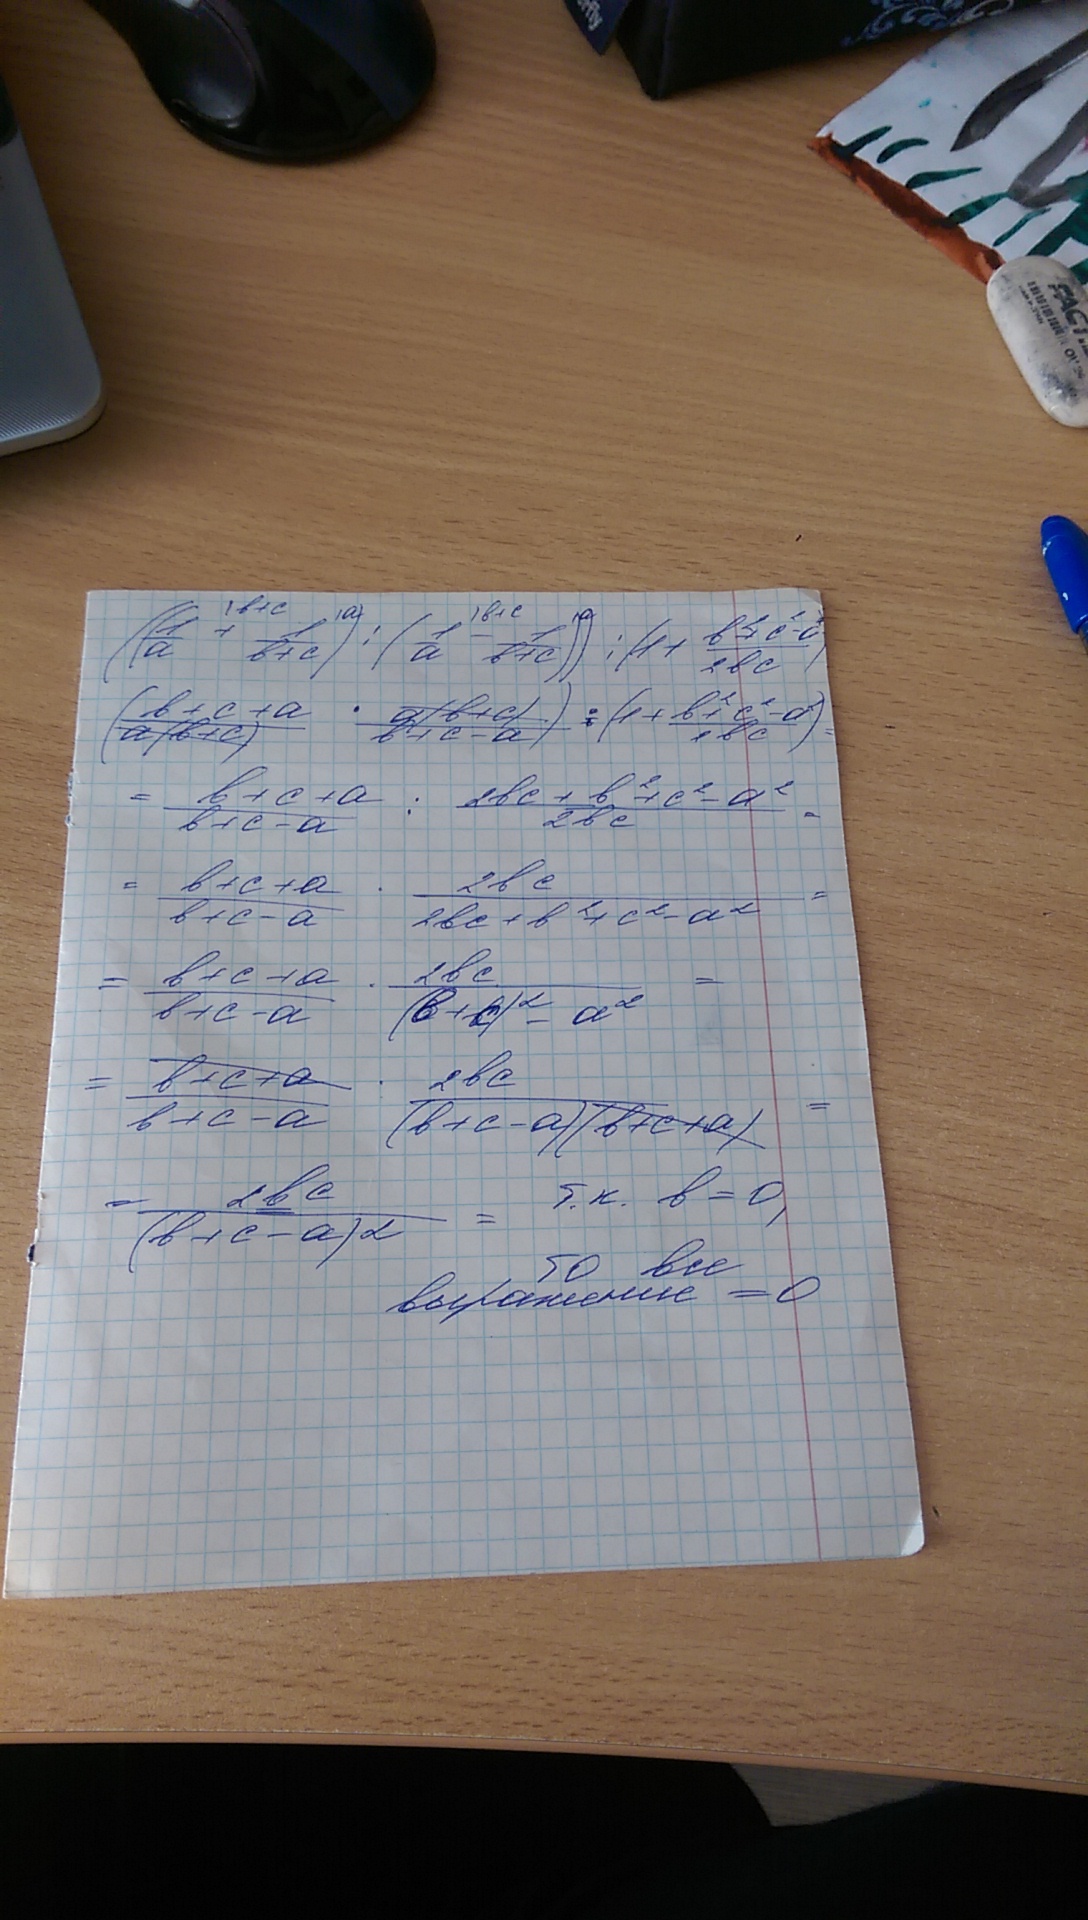 rfly
FACT
((1/a |b+c + 1/(b+c) |a) : (1/a |b+c − 1/(b+c) |a)) : (1 + (b²+c²-a²)/2bc)
((b+c+a)/(a(b+c)) · (a(b+c))/(b+c-a)) : (1 + (b²+c²-a²)/2bc) =
= (b+c+a)/(b+c-a) : (2bc+b²+c²-a²)/2bc =
= (b+c+a)/(b+c-a) · 2bc/(2bc+b²+c²-a²) =
= (b+c+a)/(b+c-a) · 2bc/((b+c)²-a²) =
= (b+c+a)/(b+c-a) · 2bc/((b+c-a)(b+c+a)) =
= 2bc/(b+c-a)2 = т.к. b=0,
то все
выражение =0